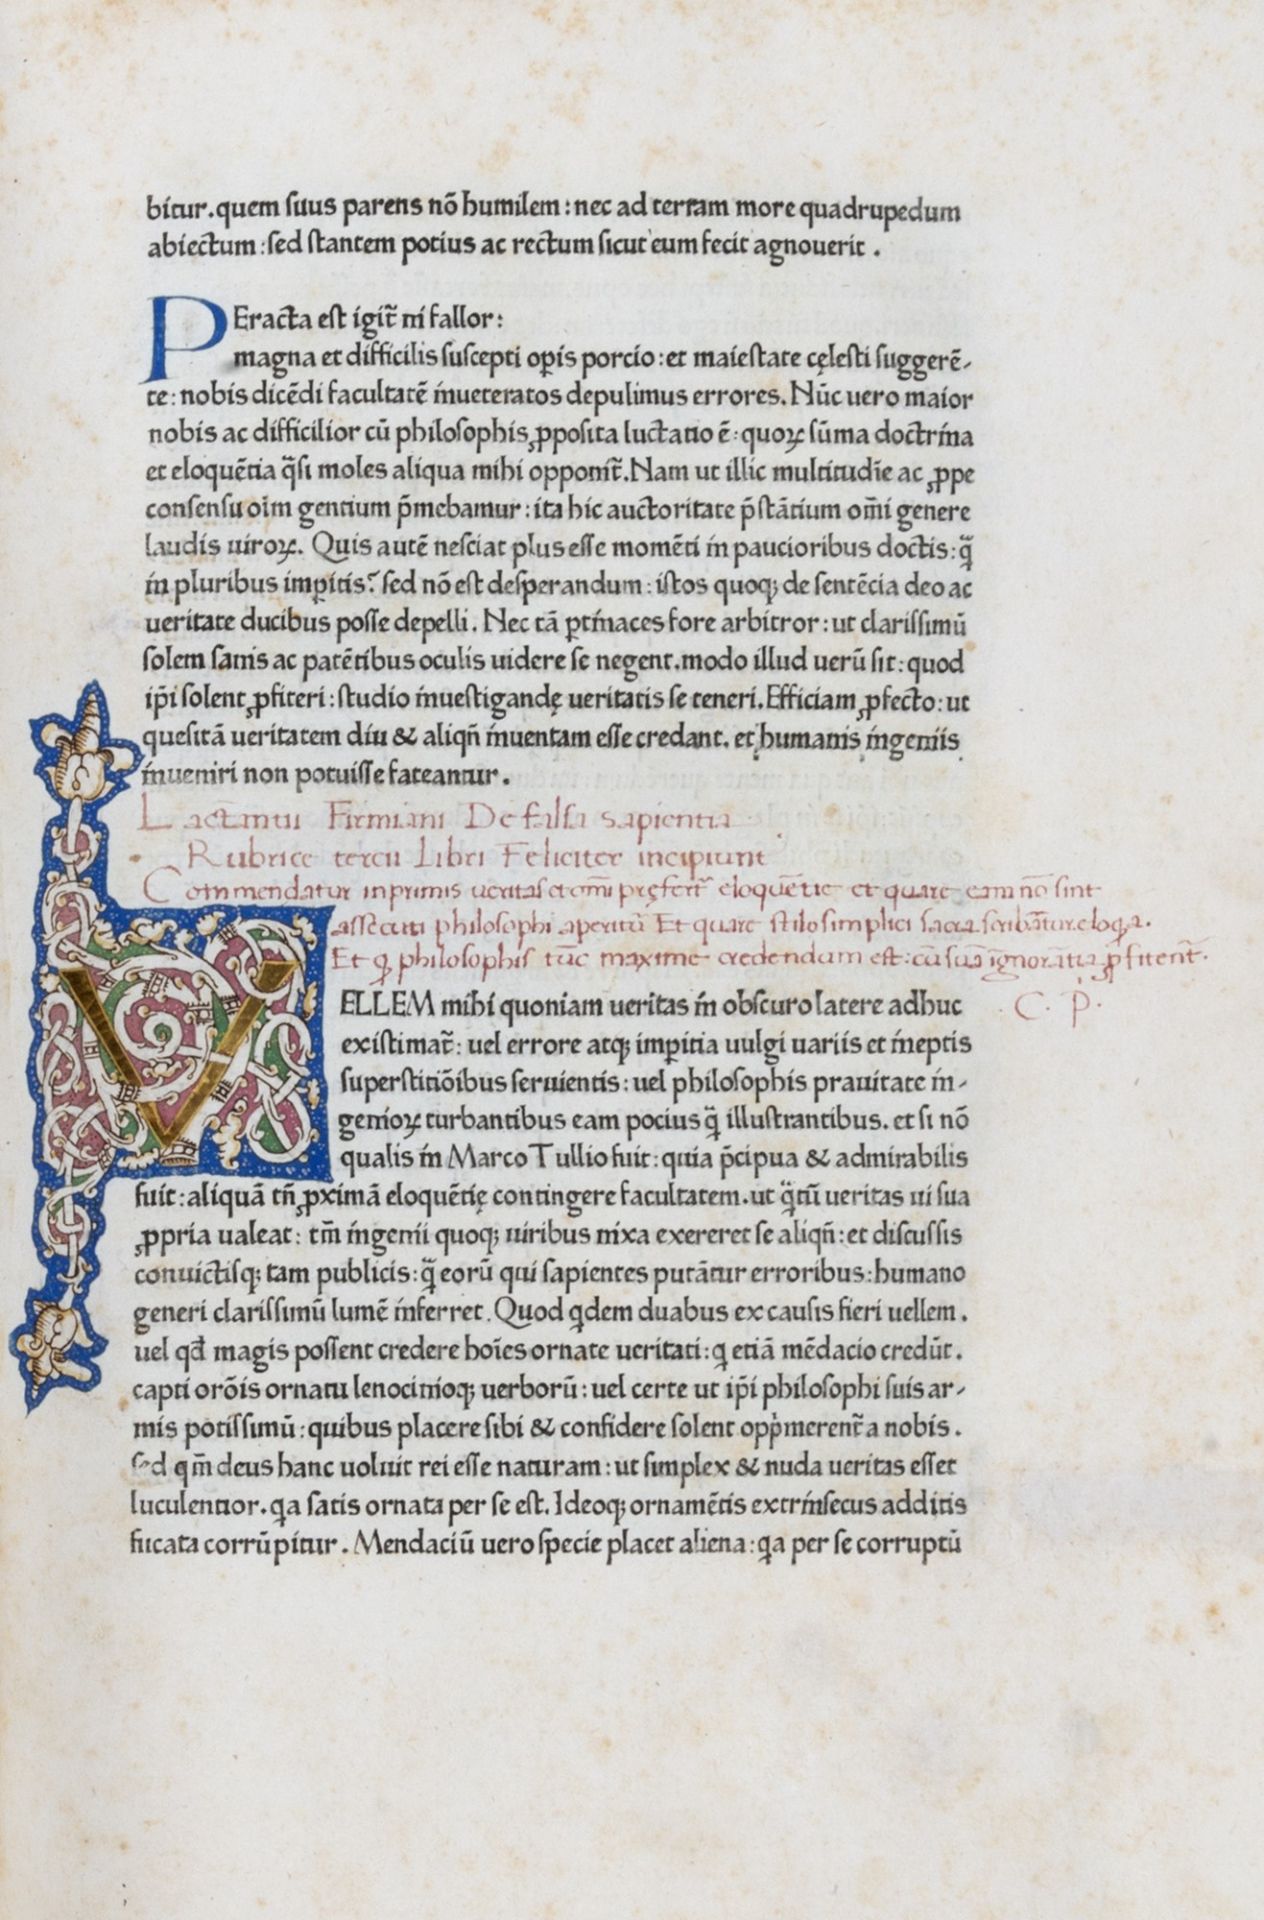 bitur.quem ſuus parens nō humilem:nec ad terram more quadrupedum
abiectum:ſed ſtantem potius ac rectum ſicut eum fecit agnouerit.
PEracta eſt igit̃ ni fallor:
magna et difficilis ſuſcepti op̲is porcio:et maieſtate cęleſti ſuggerē-
te:nobis dicēdi facultatē inueteratos depulimus errores.Nūc uero maior
nobis ac difficilior cū philoſophis ꝓpoſita luctatio ē:quoꝝ sūma doctrina
et eloquētia q̄ſi moles aliqua mihi opponit̃.Nam ut illic multitudīe ac ꝓpe
conſenſu oīm gentium p̄mebamur:ita hic auctoritate p̄ſtātium om̄i genere
laudis uiroꝝ. Quis autē neſciat plus eſſe momēti in paucioribus doctis:q̄
in pluribus imꝑitis? ſed nō eſt deſperandum:iſtos quoqꝫ de ſentēcia deo ac
ueritate ducibus poſſe depelli. Nec tā ꝑtinaces fore arbitror:ut clariſſimū
ſolem ſanis ac patētibus oculis uidere ſe negent.modo illud uerū ſit:quod
ip̄i ſolent ꝓfiteri:ſtudio inueſtigandę ueritatis ſe teneri.Efficiam ꝓfecto:ut
queſitā ueritatem diu & aliqn̄ inuentam eſſe credant.et humanis ingeniis
inueniri non potuiſſe fateantur.
Lactantii Firmiani De falſa sapientia
Rubrice tercii Libri Feliciter incipiunt
Commendatur inprimis ueritas et om̄i pręfert̃ eloquētie et quare eam nō ſint
aſſecuti philoſophi aperitū Et quare ſtilo ſimplici ſacra ſcribāntur eloqa.
Et ꝙ philoſophis tūc maxime credendum eſt:cū ſuā ignorātiā ꝓfitent̃.
C. P.
VELLEM mihi quoniam ueritas in obſcuro latere adhuc
exiſtimat̃:uel errore atqꝫ imꝑitia uulgi uariis et ineptis
ſuperſtitiōibus ſeruientis:uel philoſophis prauitate in-
genioꝝ turbantibus eam pocius q̄ illuſtrantibus.et ſi nō
qualis in Marco Tullio fuit:quia p̄cipua & admirabilis
fuit:aliquā tn̄ ꝓximā eloquētię contingere facultatem.ut q̄tū ueritas ui ſua
ꝓpria ualeat:tm̄ ingenii quoqꝫ uiribus nixa exereret ſe aliqn̄:et diſcuſſis
conuictiſqꝫ tam publicis:q̄ eorū qui ſapientes putātur erroribus:humano
generi clariſſimū lumē inferret.Quod qdem duabus ex cauſis fieri uellem.
uel qd̄ magis poſſent credere hoīes ornate ueritati:q etiā mēdacio credūt.
capti orōis ornatu lenocinioqꝫ uerborū:uel certe ut ip̄i philoſophi ſuis ar-
mis potiſſimū:quibus placere ſibi & confidere ſolent opp̄merent̃ a nobis.
ſed qm̄ deus hanc uoluit rei eſſe naturam:ut ſimplex & nuda ueritas eſſet
luculentior.qa ſatis ornata per ſe eſt.Ideoqꝫ ornamētis extrinſecus additis
fucata corrūpitur. Mendaciū uero ſpecie placet aliena:qa per ſe corruptū